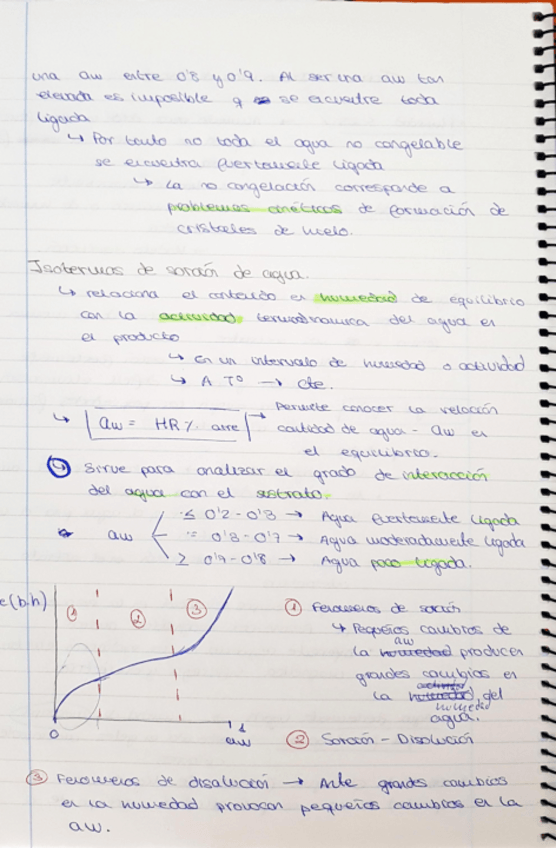 una aw entre 0'8 y 0'9. Al ser una aw tan
elevada es imposible q se encuentre toda
ligada
↳ Por tanto no toda el agua no congelable
se encuentra fuertemente ligada
↳ La no congelación corresponde a
problemas cinéticos de formación de
cristales de hielo.
Isotermas de sorción de agua.
↳ relaciona el contenido en humedad de equilibrio
con la actividad termodinámica del agua en
el producto
↳ en un intervalo de humedad o actividad
↳ A Tº → cte.
↳ aw = HR% aire → Permite conocer la relación
cantidad de agua - aw en
el equilibrio.
↳ Sirve para analizar el grado de interacción
del agua con el sustrato.
aw
≤ 0'2-0'3 → Agua fuertemente ligada
= 0'3-0'7 → Agua moderadamente ligada
≥ 0'7-0'8 → Agua poco ligada.
e(b.h)
① ② ③
0 1
aw
① Fenómenos de sorción
↳ Pequeños cambios de
aw
la humedad producen
grandes cambios en
la actividad del
humedad
agua.
② Sorción - Disolución
③ Fenómenos de disolución → Ante grandes cambios
en la humedad provocan pequeños cambios en la
aw.